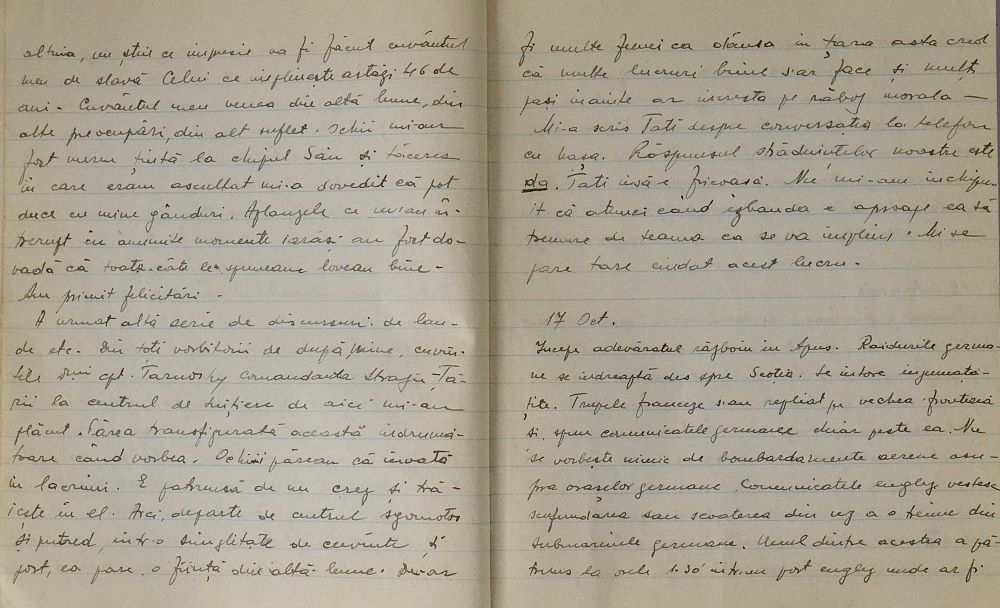 altuia, nu știu ce impresie va fi făcut cuvântul
meu de slavă Celui ce împlinește astăzi 46 de
ani. Cuvântul meu venea din altă lume, din
alte preocupări, din alt suflet. Ochii mi-au
fost mereu țintă la chipul Său și tăcerea
în care eram ascultat mi-a dovedit că pot
duce cu mine gânduri. Aplauzele ce m-au în-
trerupt în anumite momente iarăși au fost do-
vadă că toate câte le spuneam loveau bine.
Am primit felicitări.
A urmat altă serie de discursuri de lau-
de etc. Din toți vorbitorii de după mine, cuvin-
tele Dnei cpt. Tarnosky comandanta Străjii Ță-
rii la centrul de de aici mi-au
plăcut. Părea transfigurată această îndrumă-
toare când vorbea. Ochii păreau că înoată
în lacrimi. E pătrunsă de un crez și tră-
iește în el. Aici, departe de centrul sgomotos
și putred, într-o simplitate de cuvinte și
port, ea pare o ființă din altă lume. De-ar
fi multe femei ca dânsa în țara asta cred
că multe lucruri bune s-ar face și mulți
pași înainte ar încresta pe răboj morala —
Mi-a scris Tati despre conversația la telefon
cu Nașa. Răspunsul străduințelor noastre este
da. Tati însă-i fricoasă. Nu mi-am închipu-
it că atunci când izbânda e aproape ea să
tremure de teama ca se va împlini. Mi se
pare tare ciudat acest lucru.
17 Oct.
Începe adevăratul război în Apus. Raidurile germa-
ne se îndreaptă des spre Scoția. Se întorc înjumătă-
țite. Trupele franceze s-au repliat pe vechea frontieră
și, spun comunicatele germane chiar peste ea. Nu
se vorbește nimic de bombardamente aeriene asu-
pra orașelor germane. Comunicatele engleze vestesc
scufundarea sau scoaterea din uz a o treime din
submarinele germane. Unul dintre acestea a pă-
truns la orele 1.30' într-un port englez unde ar fi